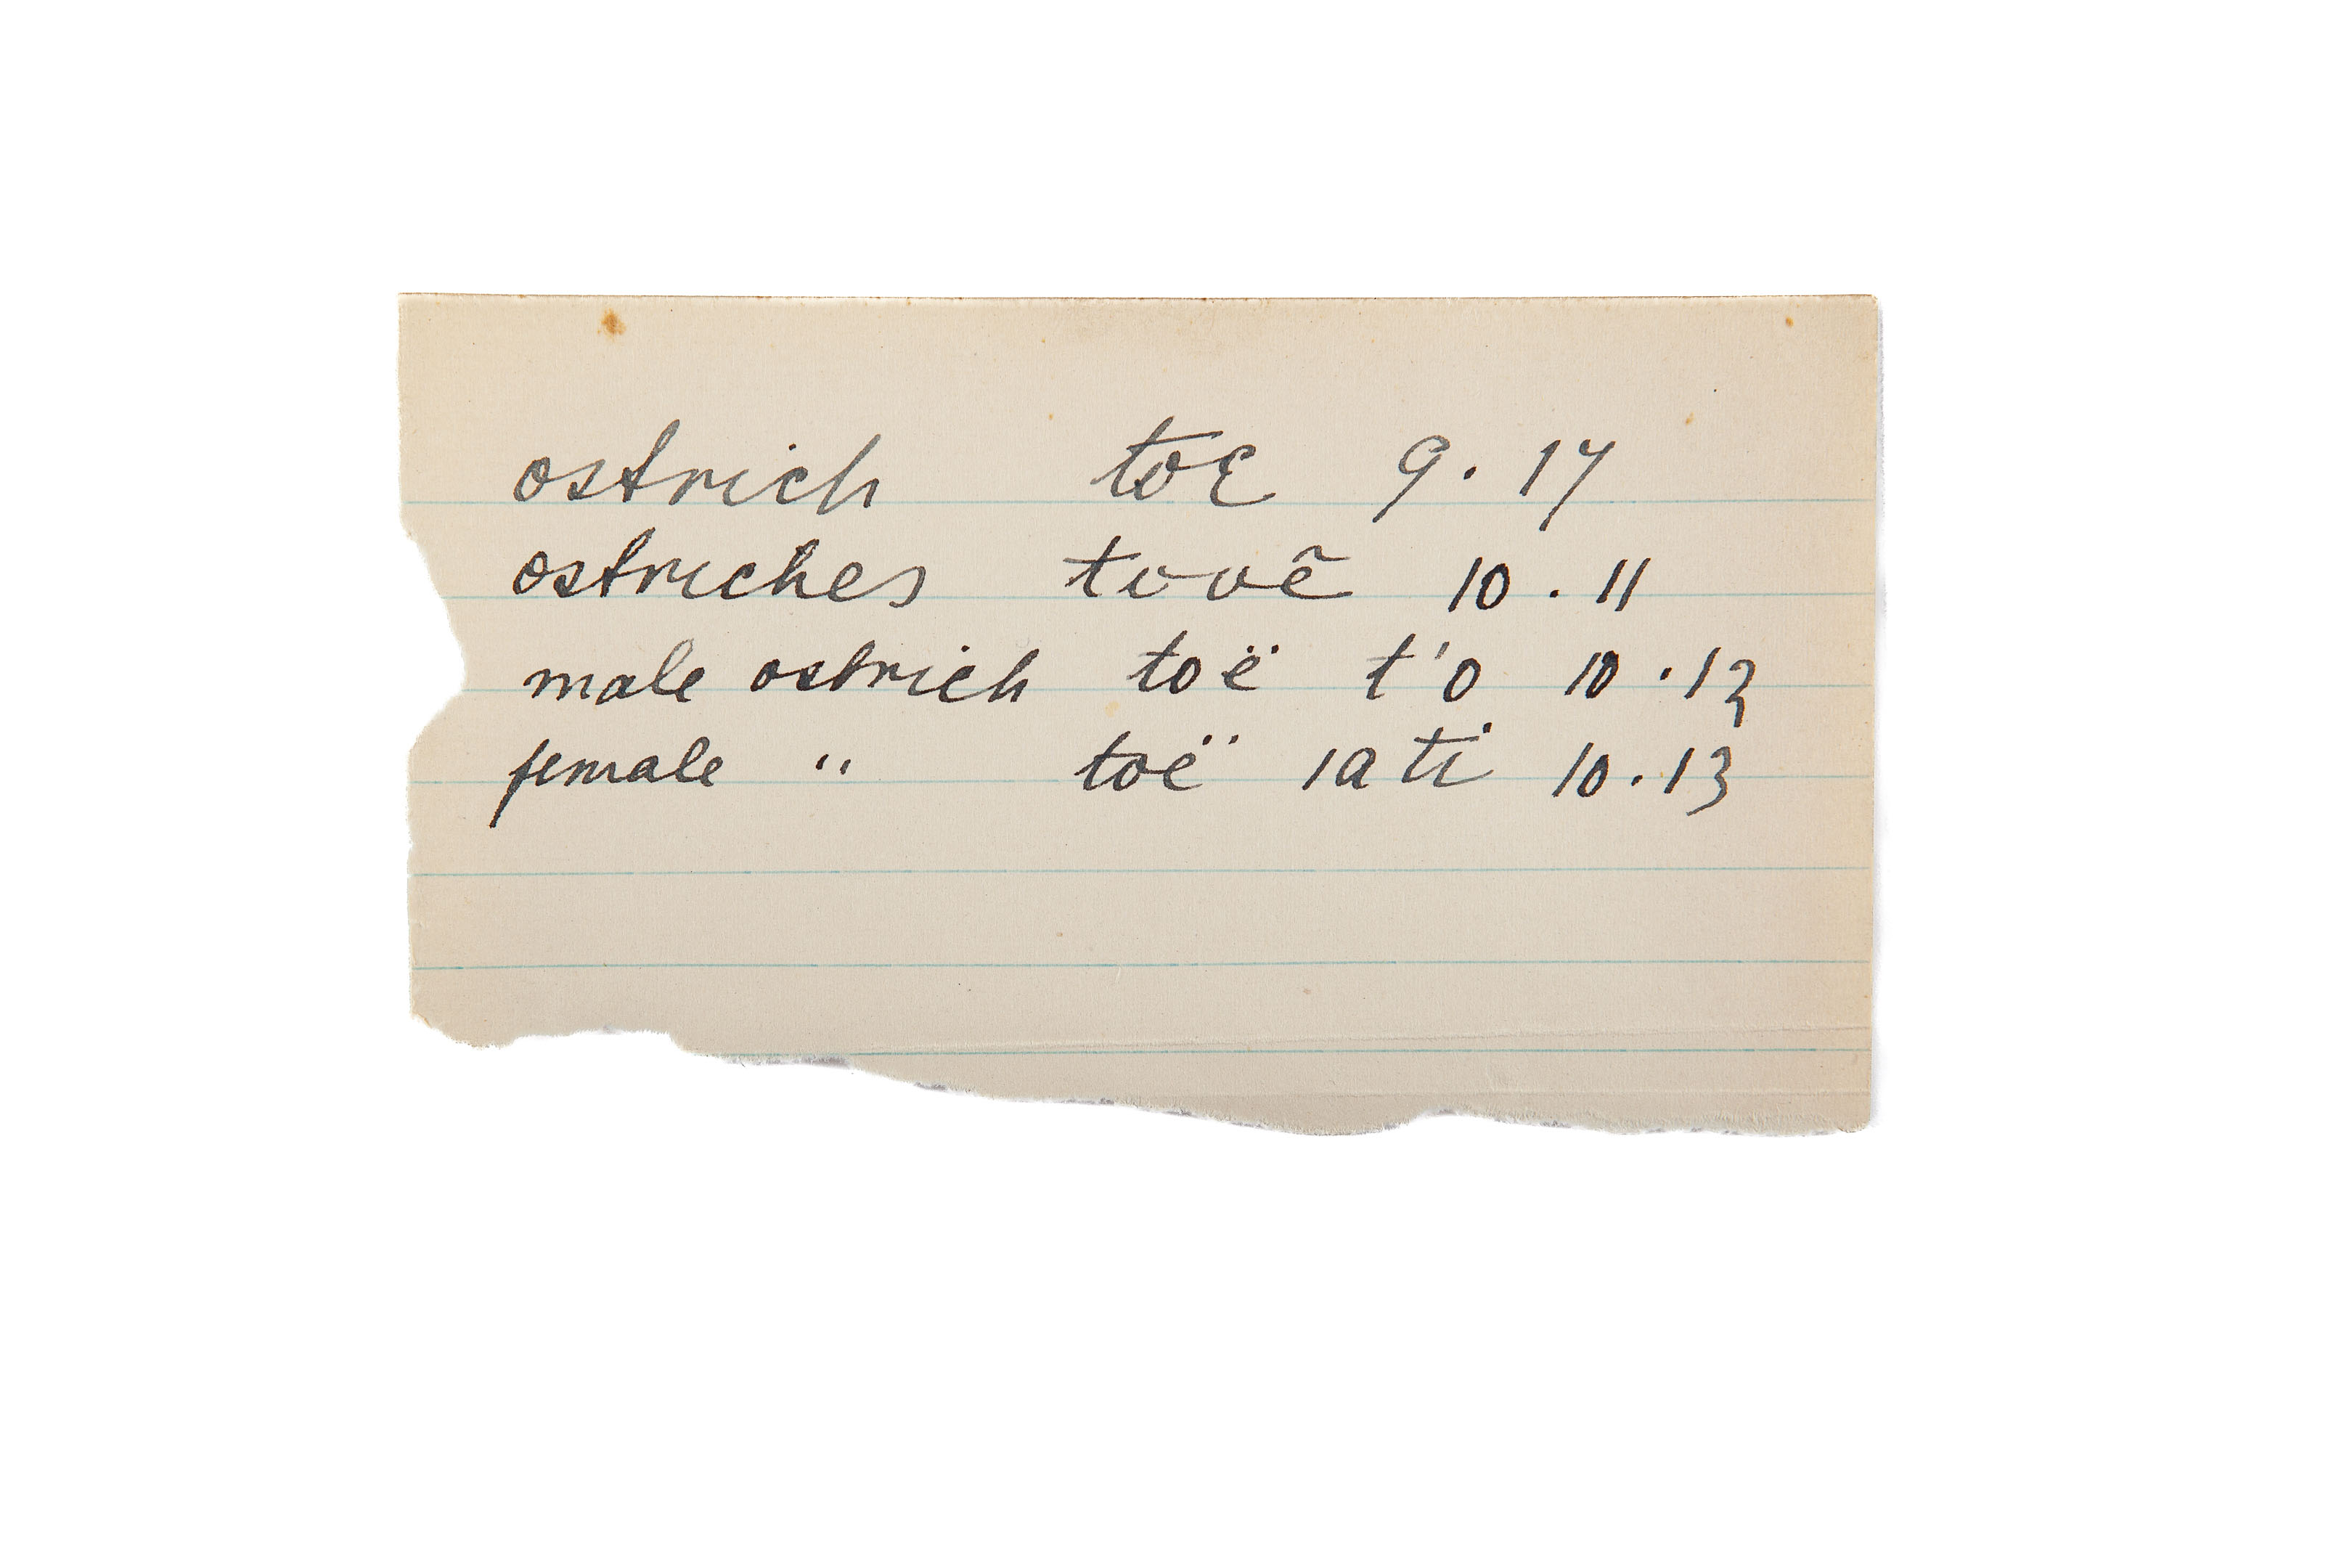 ostrich toɛ 9.17
ostriches tooẽ 10.11
male ostrich toë t'o 10.12
female " toë ıati 10.13